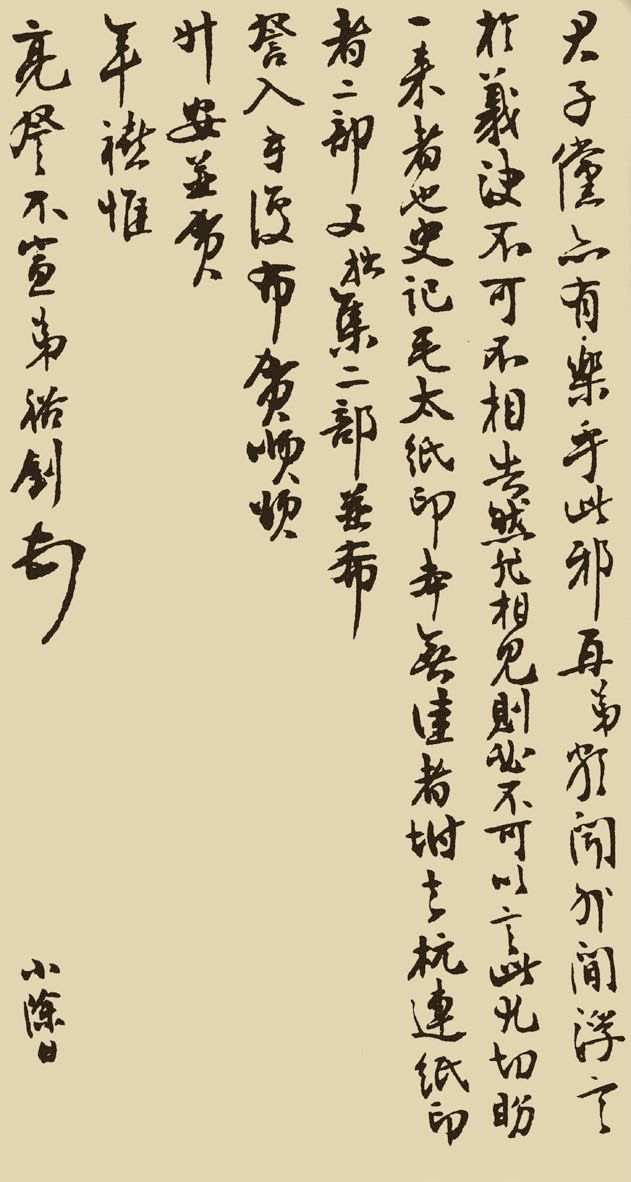 君子儻亦有樂乎此邪再弟頗聞外間浮言
於義決不可不相告然非相見則必不可以言此尤切盼
一來者也史記毛太紙印本無佳者坿去杭連紙印
者二部又拙集二部並希
詧入手復布賀順頌
升安並賀
年禧惟
亮詧不宣弟裕釗頓
小除日